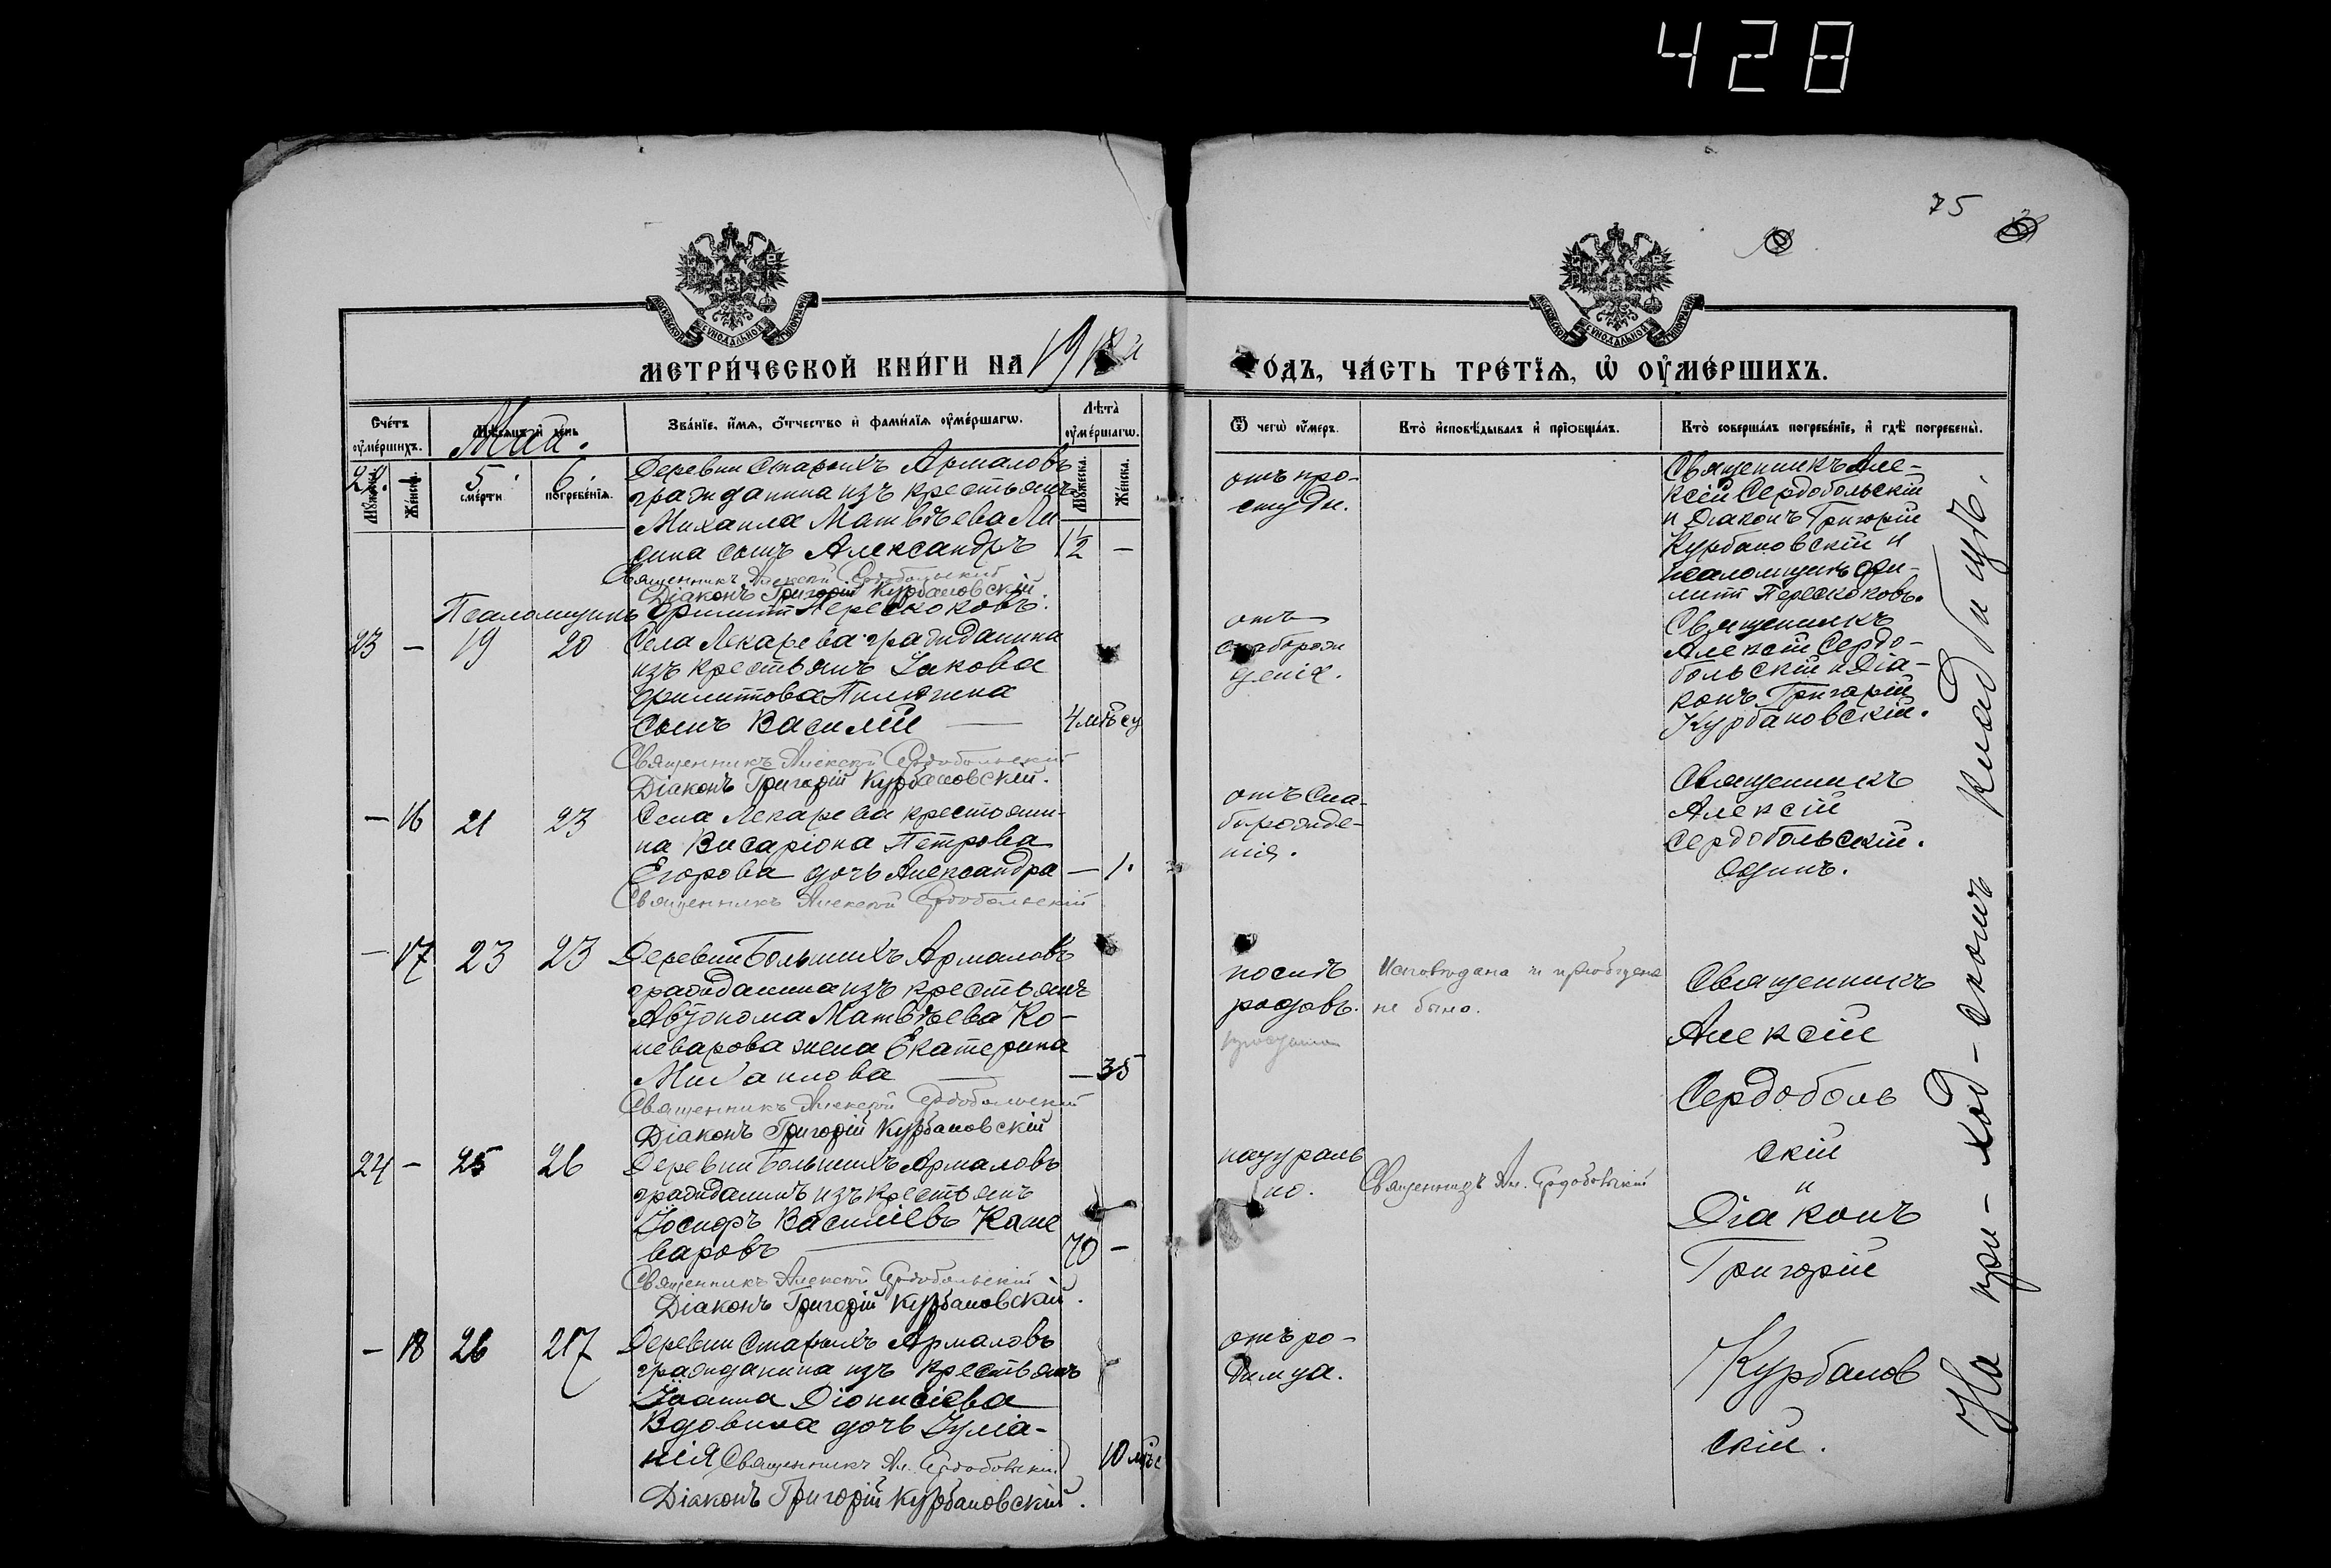 428
75
МЕТРИ́ЧЕСКОЙ КНИ́ГИ НА 1918й ГО́ДЪ, ЧА́СТЬ ТРЕ́ТЇѦ, Ѡ҆ ОУ҆МЕ́РШИХЪ.
Сче́тъ оу҆ме́ршихъ.
Мѣ́сяцъ и҆ день
Май.
Зва́нїе, и҆́мѧ, ѻ҆́тчество и҆ фами́лїѧ оу҆ме́ршагѡ.
Лѣта̀ оу҆ме́ршагѡ.
Ѿ чегѡ̀ оу҆́меръ.
Кто̀ и҆сповѣ́дывалъ и҆ прїѡбща́лъ.
Кто̀ соверша́лъ погребе́нїе, и҆ гдѣ̀ погребены̀.
Мꙋ́жеска. Же́нска. сме́рти погребе́нїѧ. Мꙋ́жеска. Же́нска.
22. – 5. 6.
Деревни Старыхъ Армаловъ
гражданина изъ крестьянъ
Михаила Матвѣева Ли
сина сынъ Александръ 1/2 –
Священникъ Алексій Сердобольскій
Діаконъ Григорій Курбановскій.
Псаломщикъ Филиппъ Перескоковъ.
отъ про-
студы.
Священникъ Але-
ксій Сердобольскій
и Діаконъ Григорій
Курбановскій и
псаломщикъ Фи-
липп Перескоковъ.
23 – 19 20
Села Лекарева гражданина
изъ крестьянъ Іакова
Филиппова Пилюгина
сынъ Василій 4 мѣсу
Священникъ Алексій Сердобольскій
Діаконъ Григорій Курбановскій.
отъ
слаборож
денія.
Священникъ
Алексій Сердо-
больскій и Діа-
конъ Григорій
Курбановскій.
– 16 21 23
Села Лекарева крестьяни-
на Висаріона Петрова
Егорова дочь Александра – 1.
Священникъ Алексій Сердобольскій
отъ сла-
борожде-
нія.
Священникъ
Алексій
Сердобольскій.
одинъ.
– 17 23 23
Деревни Большихъ Армаловъ
гражданина изъ крестьянъ
Автонома Матвѣева Ко-
шеварова жена Екатерина
Михаилова – 35
Священникъ Алексій Сердобольскій
Діаконъ Григорій Курбановскій
послѣ
родовъ.
Исповѣдана и пріобщена
не была.
Священникъ
Алексій
Сердоболь
скій
и
Діаконъ
Григорій
Курбанов
скій.
24 – 25 26
Деревни Большихъ Армаловъ
гражданинъ изъ крестьянъ
Іосифъ Васильевъ Каше
варовъ 70 –
Священникъ Алексій Сердобольскій
Діаконъ Григорій Курбановскій.
натураль
но.
Священникъ Ал. Сердобольскій
– 18 26 27
Деревни Старыхъ Армаловъ
гражданина изъ крестьянъ
Іоанна Діонисіева
Вдовина дочь Іуліа-
нія 10 мѣс
Священникъ Ал. Сердобольскій
Діаконъ Григорій Курбановскій.
отъ ро-
димца.
На при-ход-скомъ кладбищѣ.